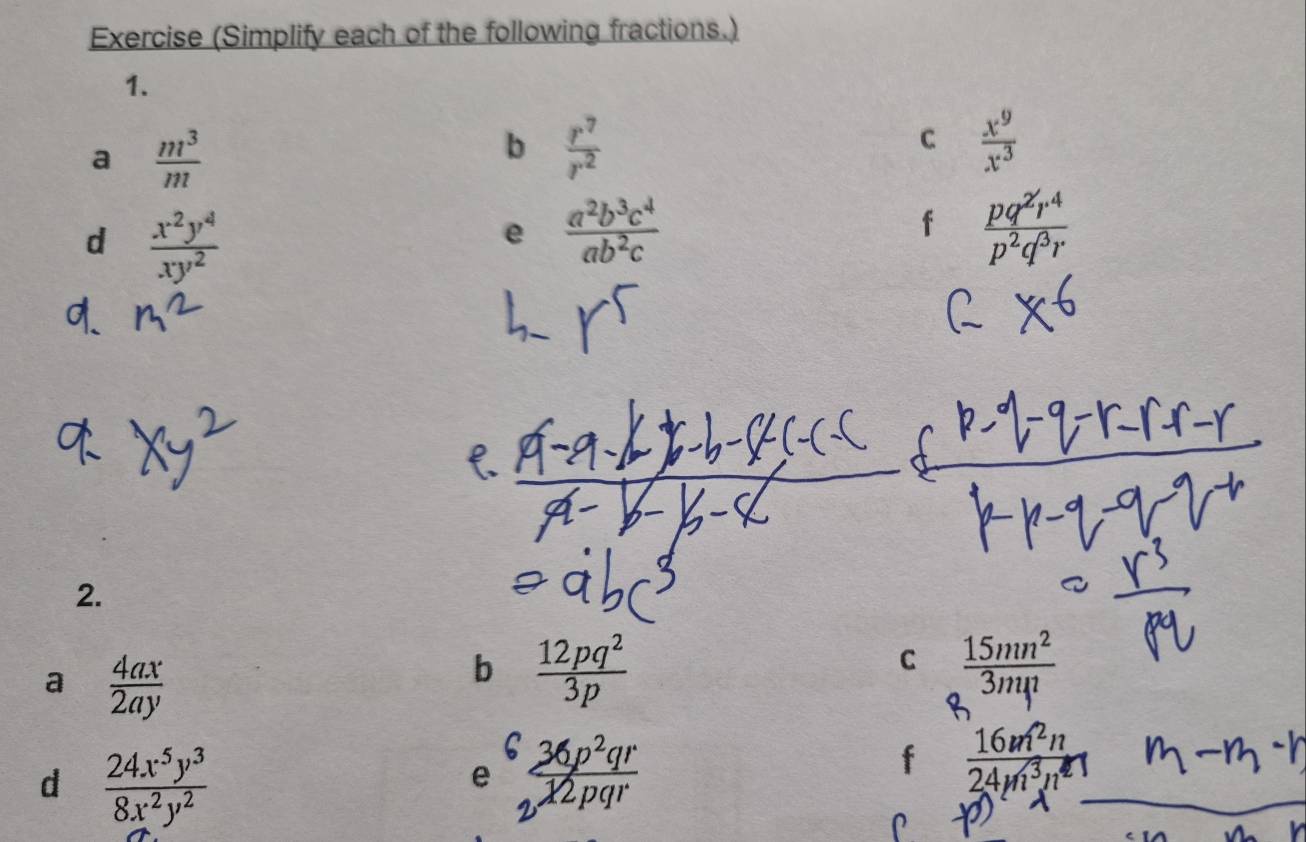 Exercise (Simplify each of the following fractions.)
1.
a m³/m b r⁷/r² c x⁹/x³
d x²y⁴/xy² e a²b³c⁴/ab²c f pq²r⁴/p²q³r
a. m² b- r⁵ C- x⁶
d. xy² e. a-a-b-b-b-c-c-c-c/a-b-b-c f p-q-q-r-r-r-r/p-p-q-q-q-r
= abc³ = r³/pq
2.
a 4ax/2ay b 12pq²/3p c 15mn²/3mn
d 24x⁵y³/8x²y² e 36p²qr/12pqr f 16m²n/24m³n²
6
2
m-m-n